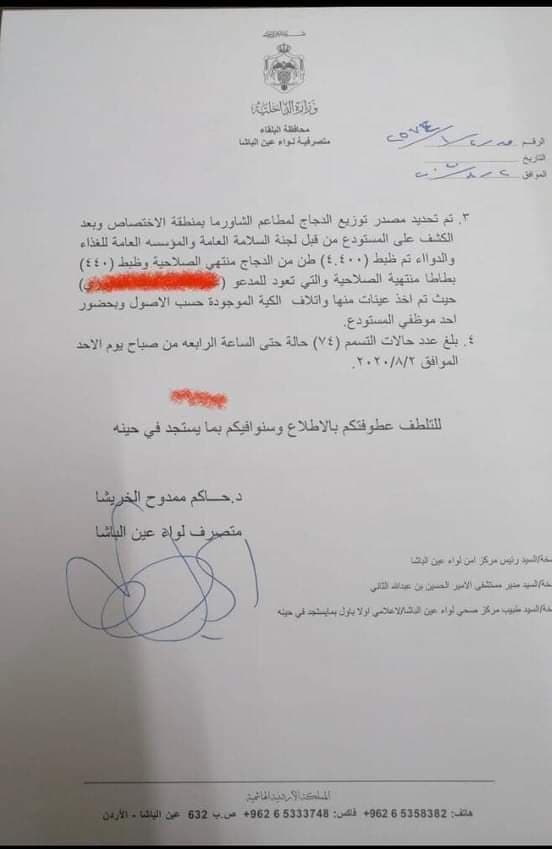 وزارة الداخلية
محافظة البلقاء
متصرفية لواء عين الباشا
الرقم
التاريخ
الموافق
٣. تم تحديد مصدر توزيع الدجاج لمطاعم الشاورما بمنطقة الاختصاص وبعد
الكشف على المستودع من قبل لجنة السلامة العامة والمؤسسه العامة للغذاء
والدوااء تم ظبط (٤.٤٠٠) طن من الدجاج منتهي الصلاحية وظبط (٤٤٠)
بطاطا منتهية الصلاحية والتي تعود للمدعو (
حيث تم اخذ عينات منها واتلاف الكية الموجودة حسب الاصول وبحضور
احد موظفي المستودع.
٤. بلغ عدد حالات التسمم (٧٤) حالة حتى الساعة الرابعه من صباح يوم الاحد
الموافق ٢٠٢٠/٨/٢.
للتلطف عطوفتكم بالاطلاع وسنوافيكم بما يستجد في حينه
د.حـــاكم ممدوح الخريشا
متصرف لواء عين الباشا
خة/السيد رئيس مركز امن لواء عين الباشا
خة/السيد مدير مستشفى الامير الحسين بن عبدالله الثاني
خة/السيد طبيب مركز صحي لواء عين الباشا/لاعلامي اولا باول بمايستجد في حينه
المملكة الأردنية الهاشمية
هاتف: 5358382 6 962+ فاكس: 5333748 6 962+ ص.ب 632 عين الباشا - الأردن